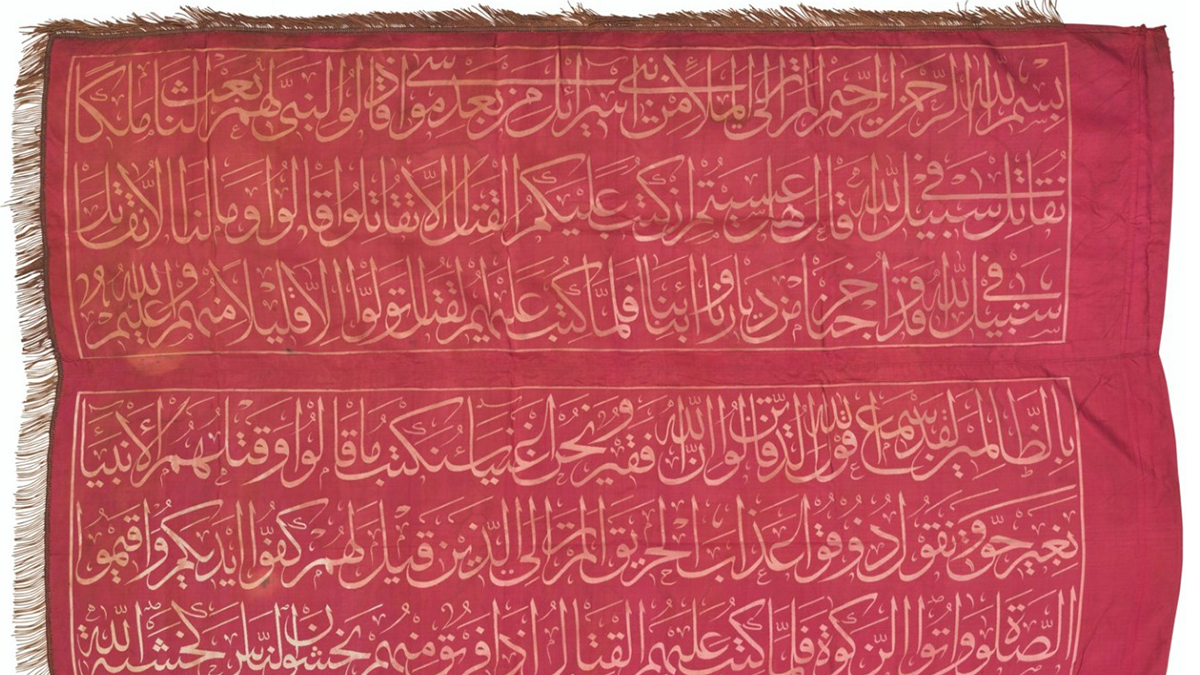 بسم الله الرحمن الرحيم الم تر الى الملأ من بنى اسرائل من بعد موسى قالوا لنبى لهم ابعث لنا ملكا
نقاتل فى سبيل الله قال هل عسيتم ان كتب عليكم القتل الا تقاتلوا قالوا وما لنا الا نقاتل
فى سبيل الله وقد اخرجنا من ديارنا وابنائنا فلما كتب عليهم القتل تولوا الا قليلا منهم والله عليم
بالظالمين لقد سمع الله قول الذين قالوا ان الله فقير ونحن اغنياء سنكتب ما قالوا وقتلهم الانبيا
بغير حق ونقول ذوقوا عذاب الحريق الم تر الى الذين قيل لهم كفوا ايديكم واقيموا
الصلوة واتوا الزكوة فلما كتب عليهم القتال اذا فريق منهم يخشون الناس كخشية الله